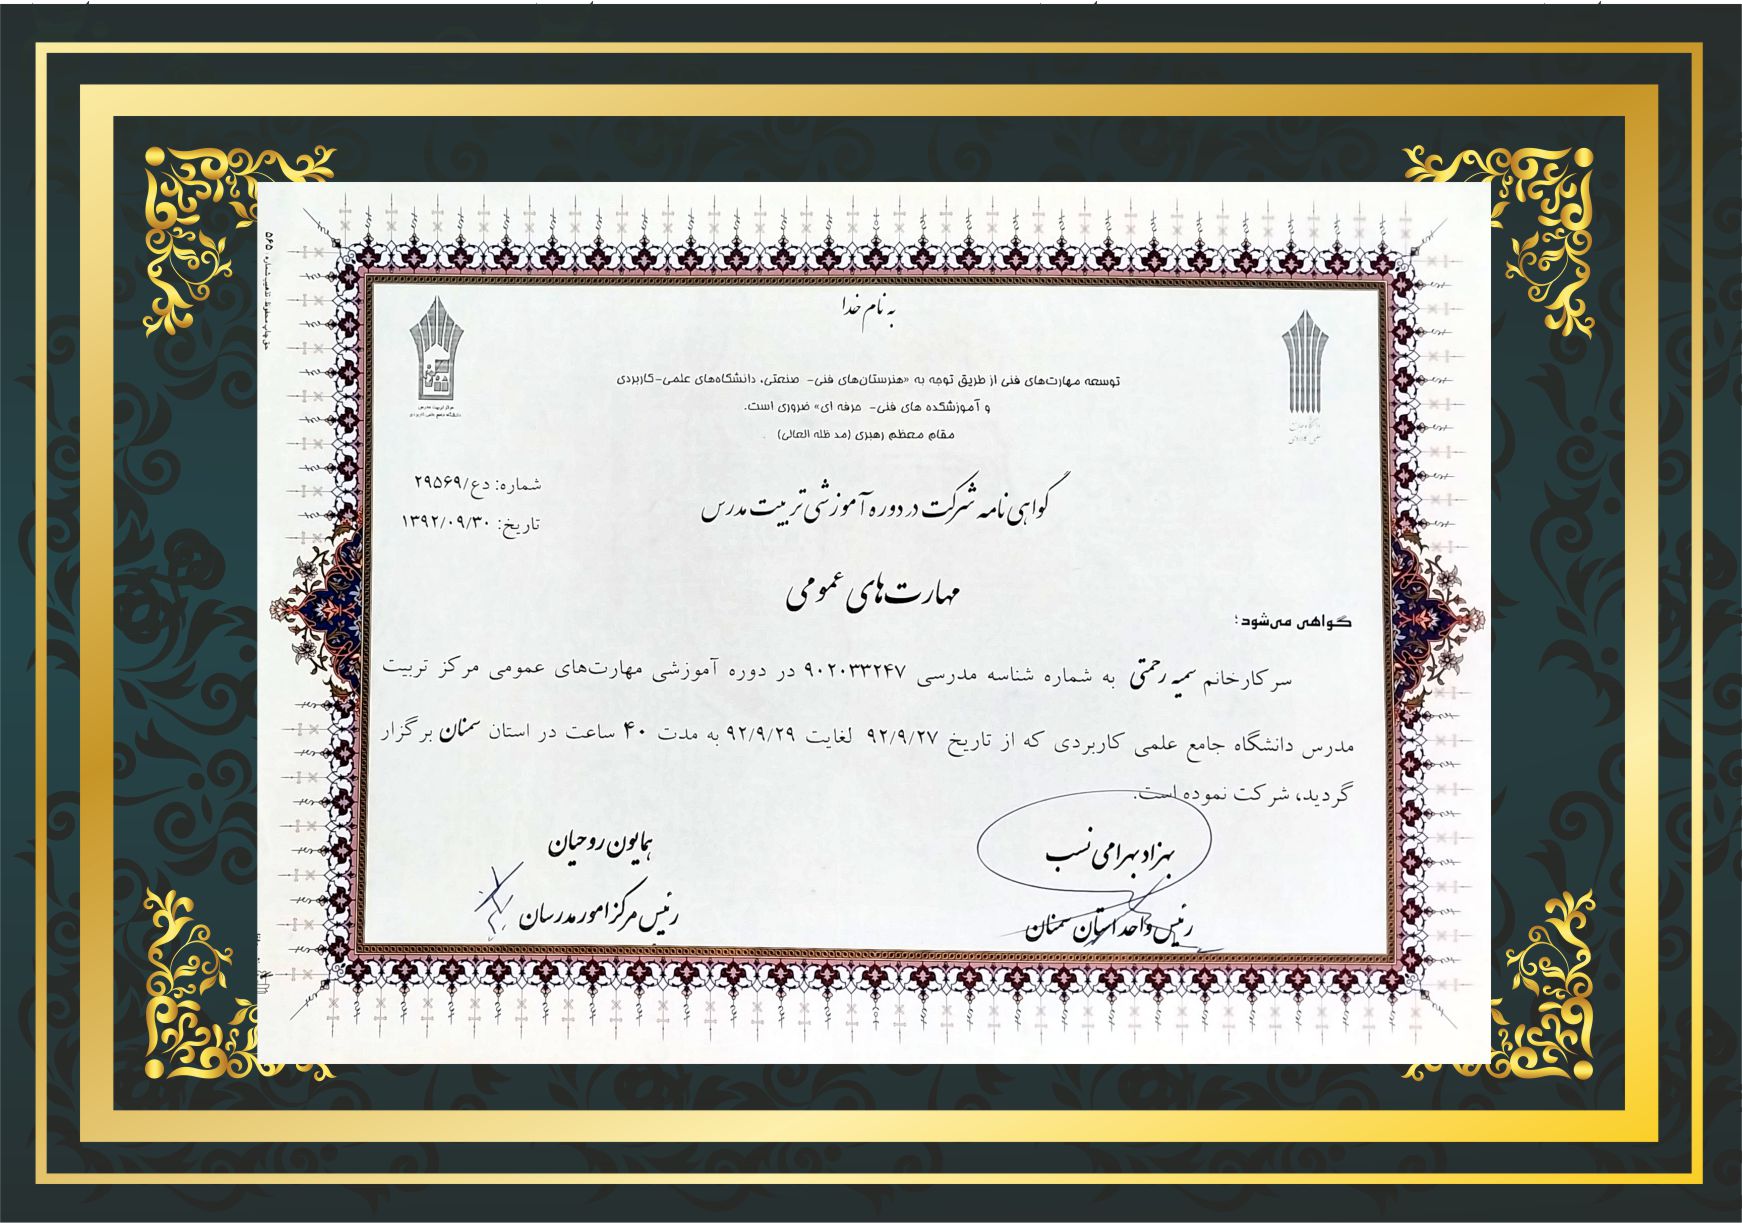 به نام خدا
توسعه مهارت‌های فنی از طریق توجه به «هنرستان‌های فنی- صنعتی، دانشگاه‌های علمی-کاربردی
و آموزشکده های فنی- حرفه ای» ضروری است.
مقام معظم رهبری (مد ظله العالی)
مرکز تربیت مدرس
دانشگاه جامع علمی کاربردی
شماره: دع/۲۹۵۶۹
تاریخ: ۱۳۹۲/۰۹/۳۰
گواهی نامه شرکت در دوره آموزشی تربیت مدرس
مهارت‌های عمومی
گواهی می‌شود؛
سرکارخانم سمیه رحمتی به شماره شناسه مدرسی ۹۰۲۰۳۳۲۴۷ در دوره آموزشی مهارت‌های عمومی مرکز تربیت
مدرس دانشگاه جامع علمی کاربردی که از تاریخ ۹۲/۹/۲۷ لغایت ۹۲/۹/۲۹ به مدت ۴۰ ساعت در استان سمنان برگزار
گردید، شرکت نموده است.
بهزاد بهرامی نسب
رئیس واحد استان سمنان
همایون روحیان
رئیس مرکز امور مدرسان